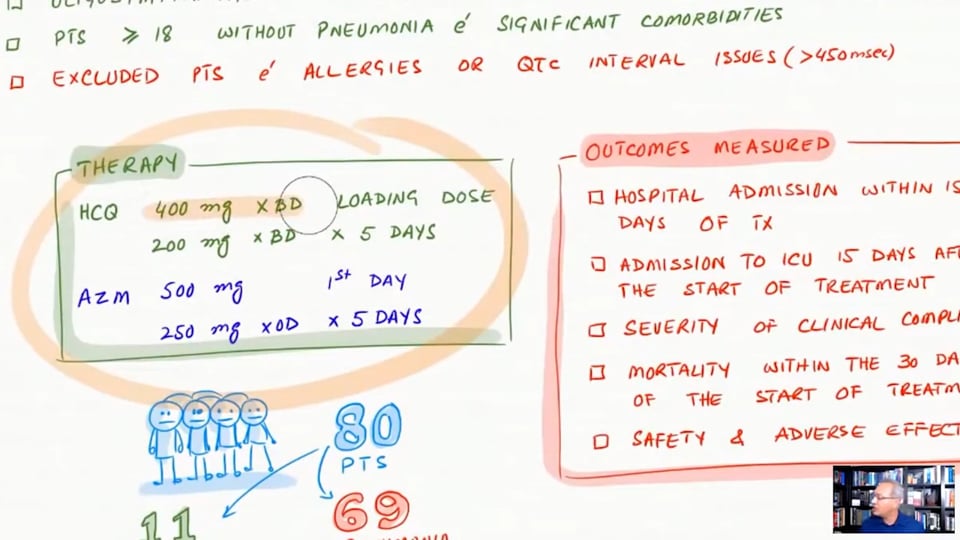 □ PTS ≥ 18 WITHOUT PNEUMONIA é SIGNIFICANT COMORBIDITIES
□ EXCLUDED PTS é ALLERGIES OR QTC INTERVAL ISSUES (>450msec)
THERAPY
HCQ 400 mg X BD LOADING DOSE
200 mg X BD X 5 DAYS
AZM 500 mg 1st DAY
250 mg XOD X 5 DAYS
80
PTS
11
69
OUTCOMES MEASURED
□ HOSPITAL ADMISSION WITHIN 15
DAYS OF TX
□ ADMISSION TO ICU 15 DAYS AF
THE START OF TREATMENT
□ SEVERITY OF CLINICAL COMPLI
□ MORTALITY WITHIN THE 30 DA
OF THE START OF TREATM
□ SAFETY & ADVERSE EFFECT